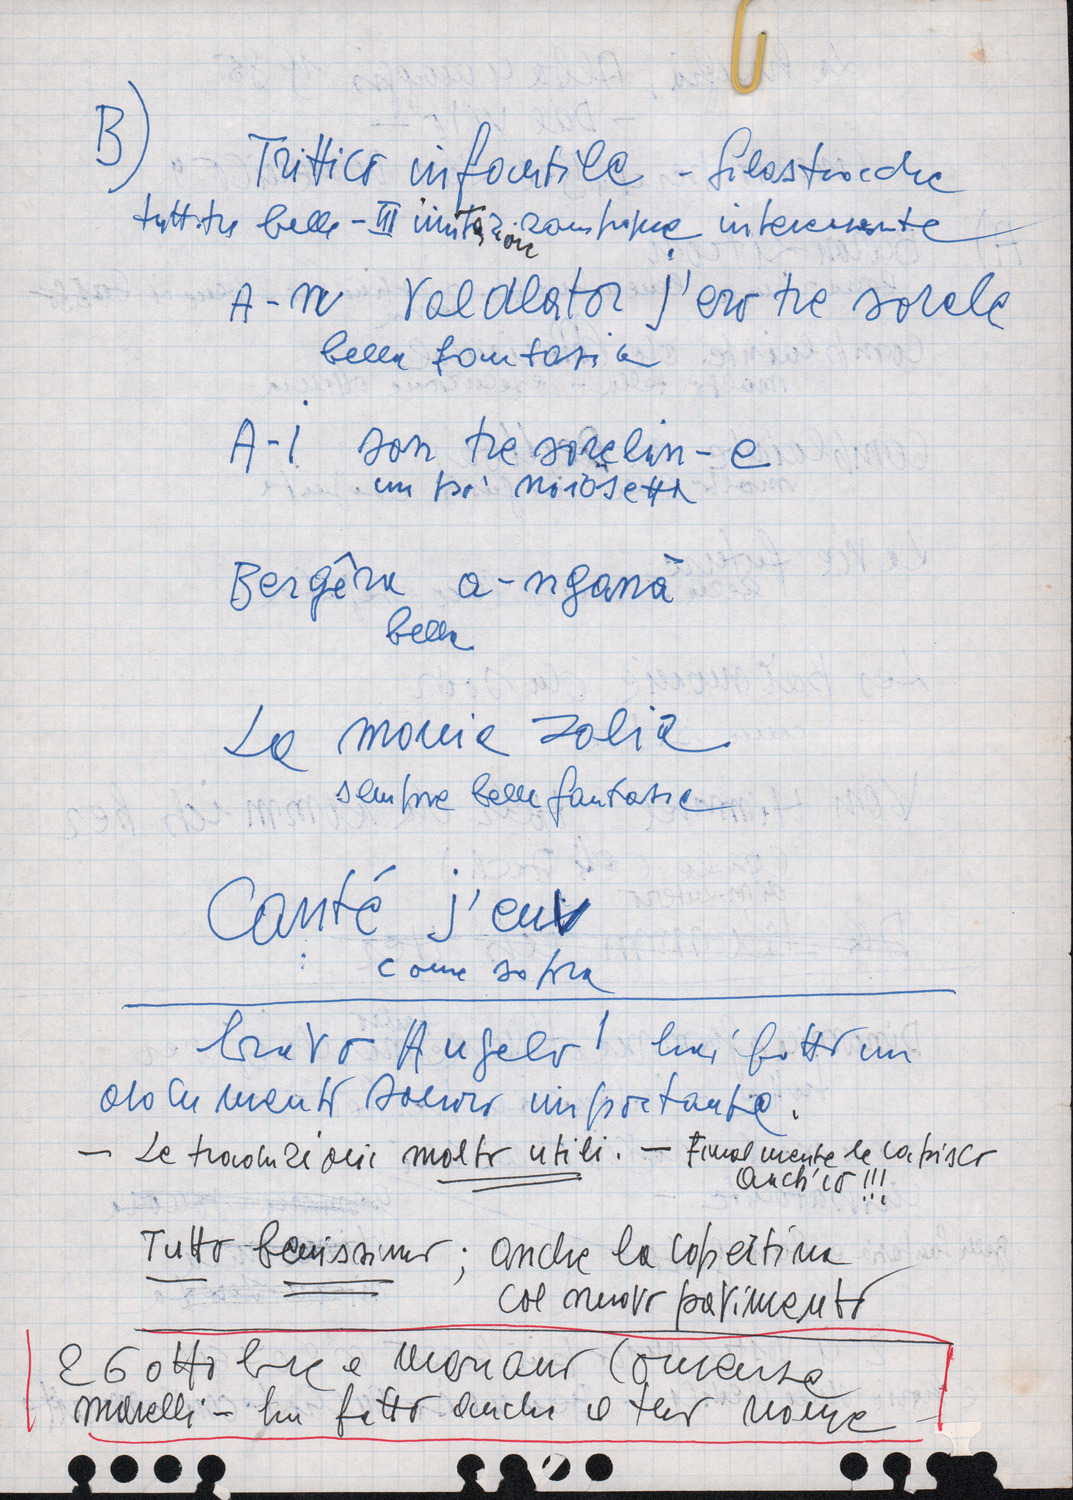 B)
Trittico infantile - filastrocche
tutt. tre belle - III imitazione zampogne interessante
A-n Valdlator j'ero tre sorele
bella fantasia
A-i son tre sorelin-e
un po' noiosetta
Bergêra a-nganà
bella
La monia zolia
sempre bella fantasia
Canté j'euv
come sopra
bravo Angelo! hai fatto un
documento sonoro importante.
— Le traduzioni molto utili. — Finalmente le capisco
anch'io!!!
Tutto benissimo; anche la copertina
col nuovo pavimento
26 ottobre a
Morelli - ho fatto anche il tuo nome